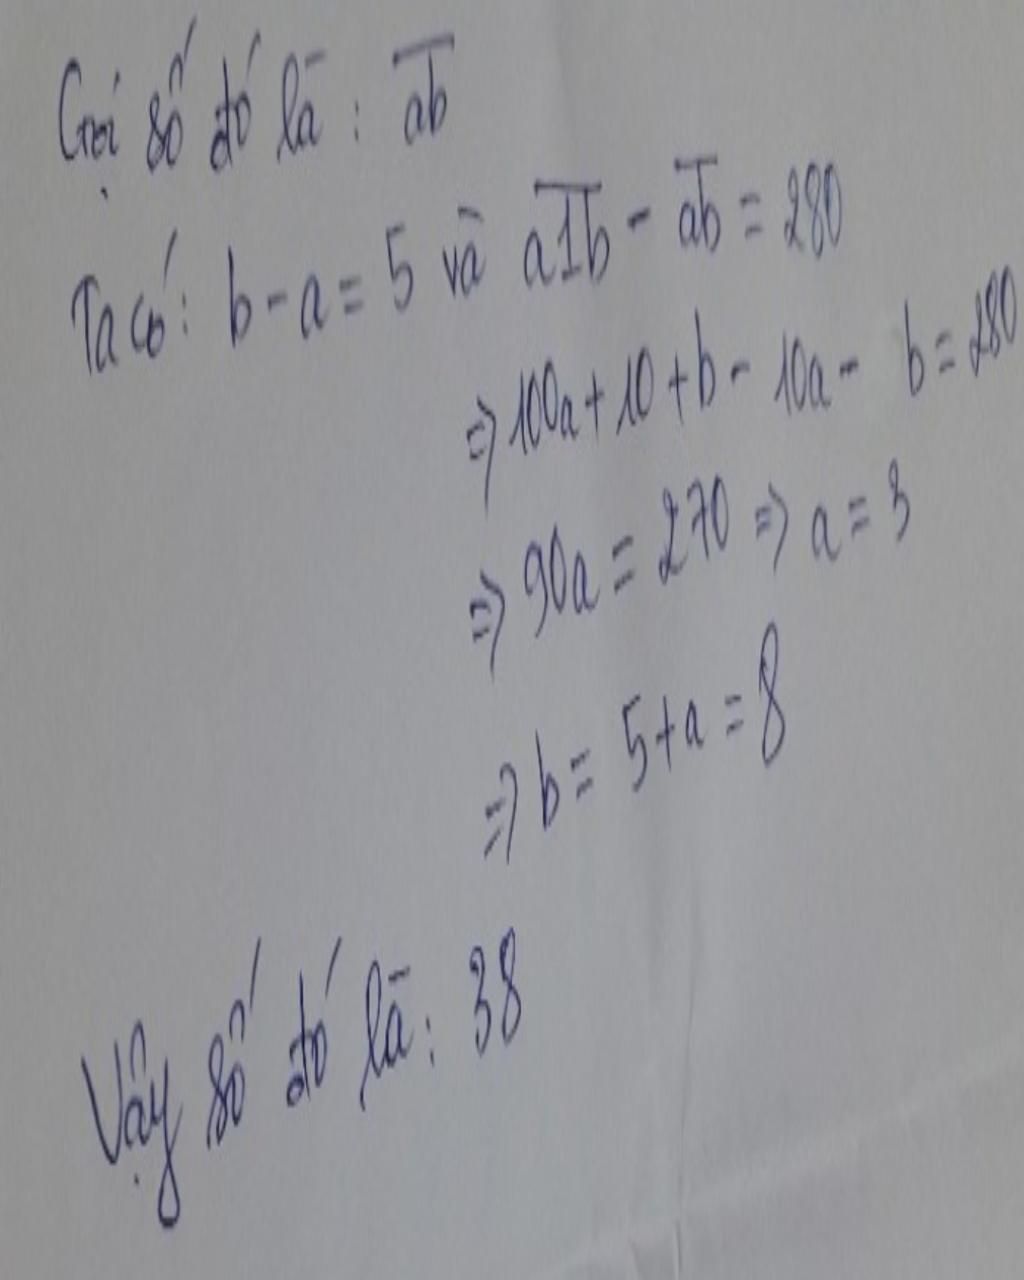 Gọi số đó là : a̅b̅
Ta có : b - a = 5 và a̅1̅b̅ - a̅b̅ = 280
=> 100a + 10 + b - 10a - b = 280
=> 90a = 270 => a = 3
=> b = 5 + a = 8
Vậy số đó là : 38